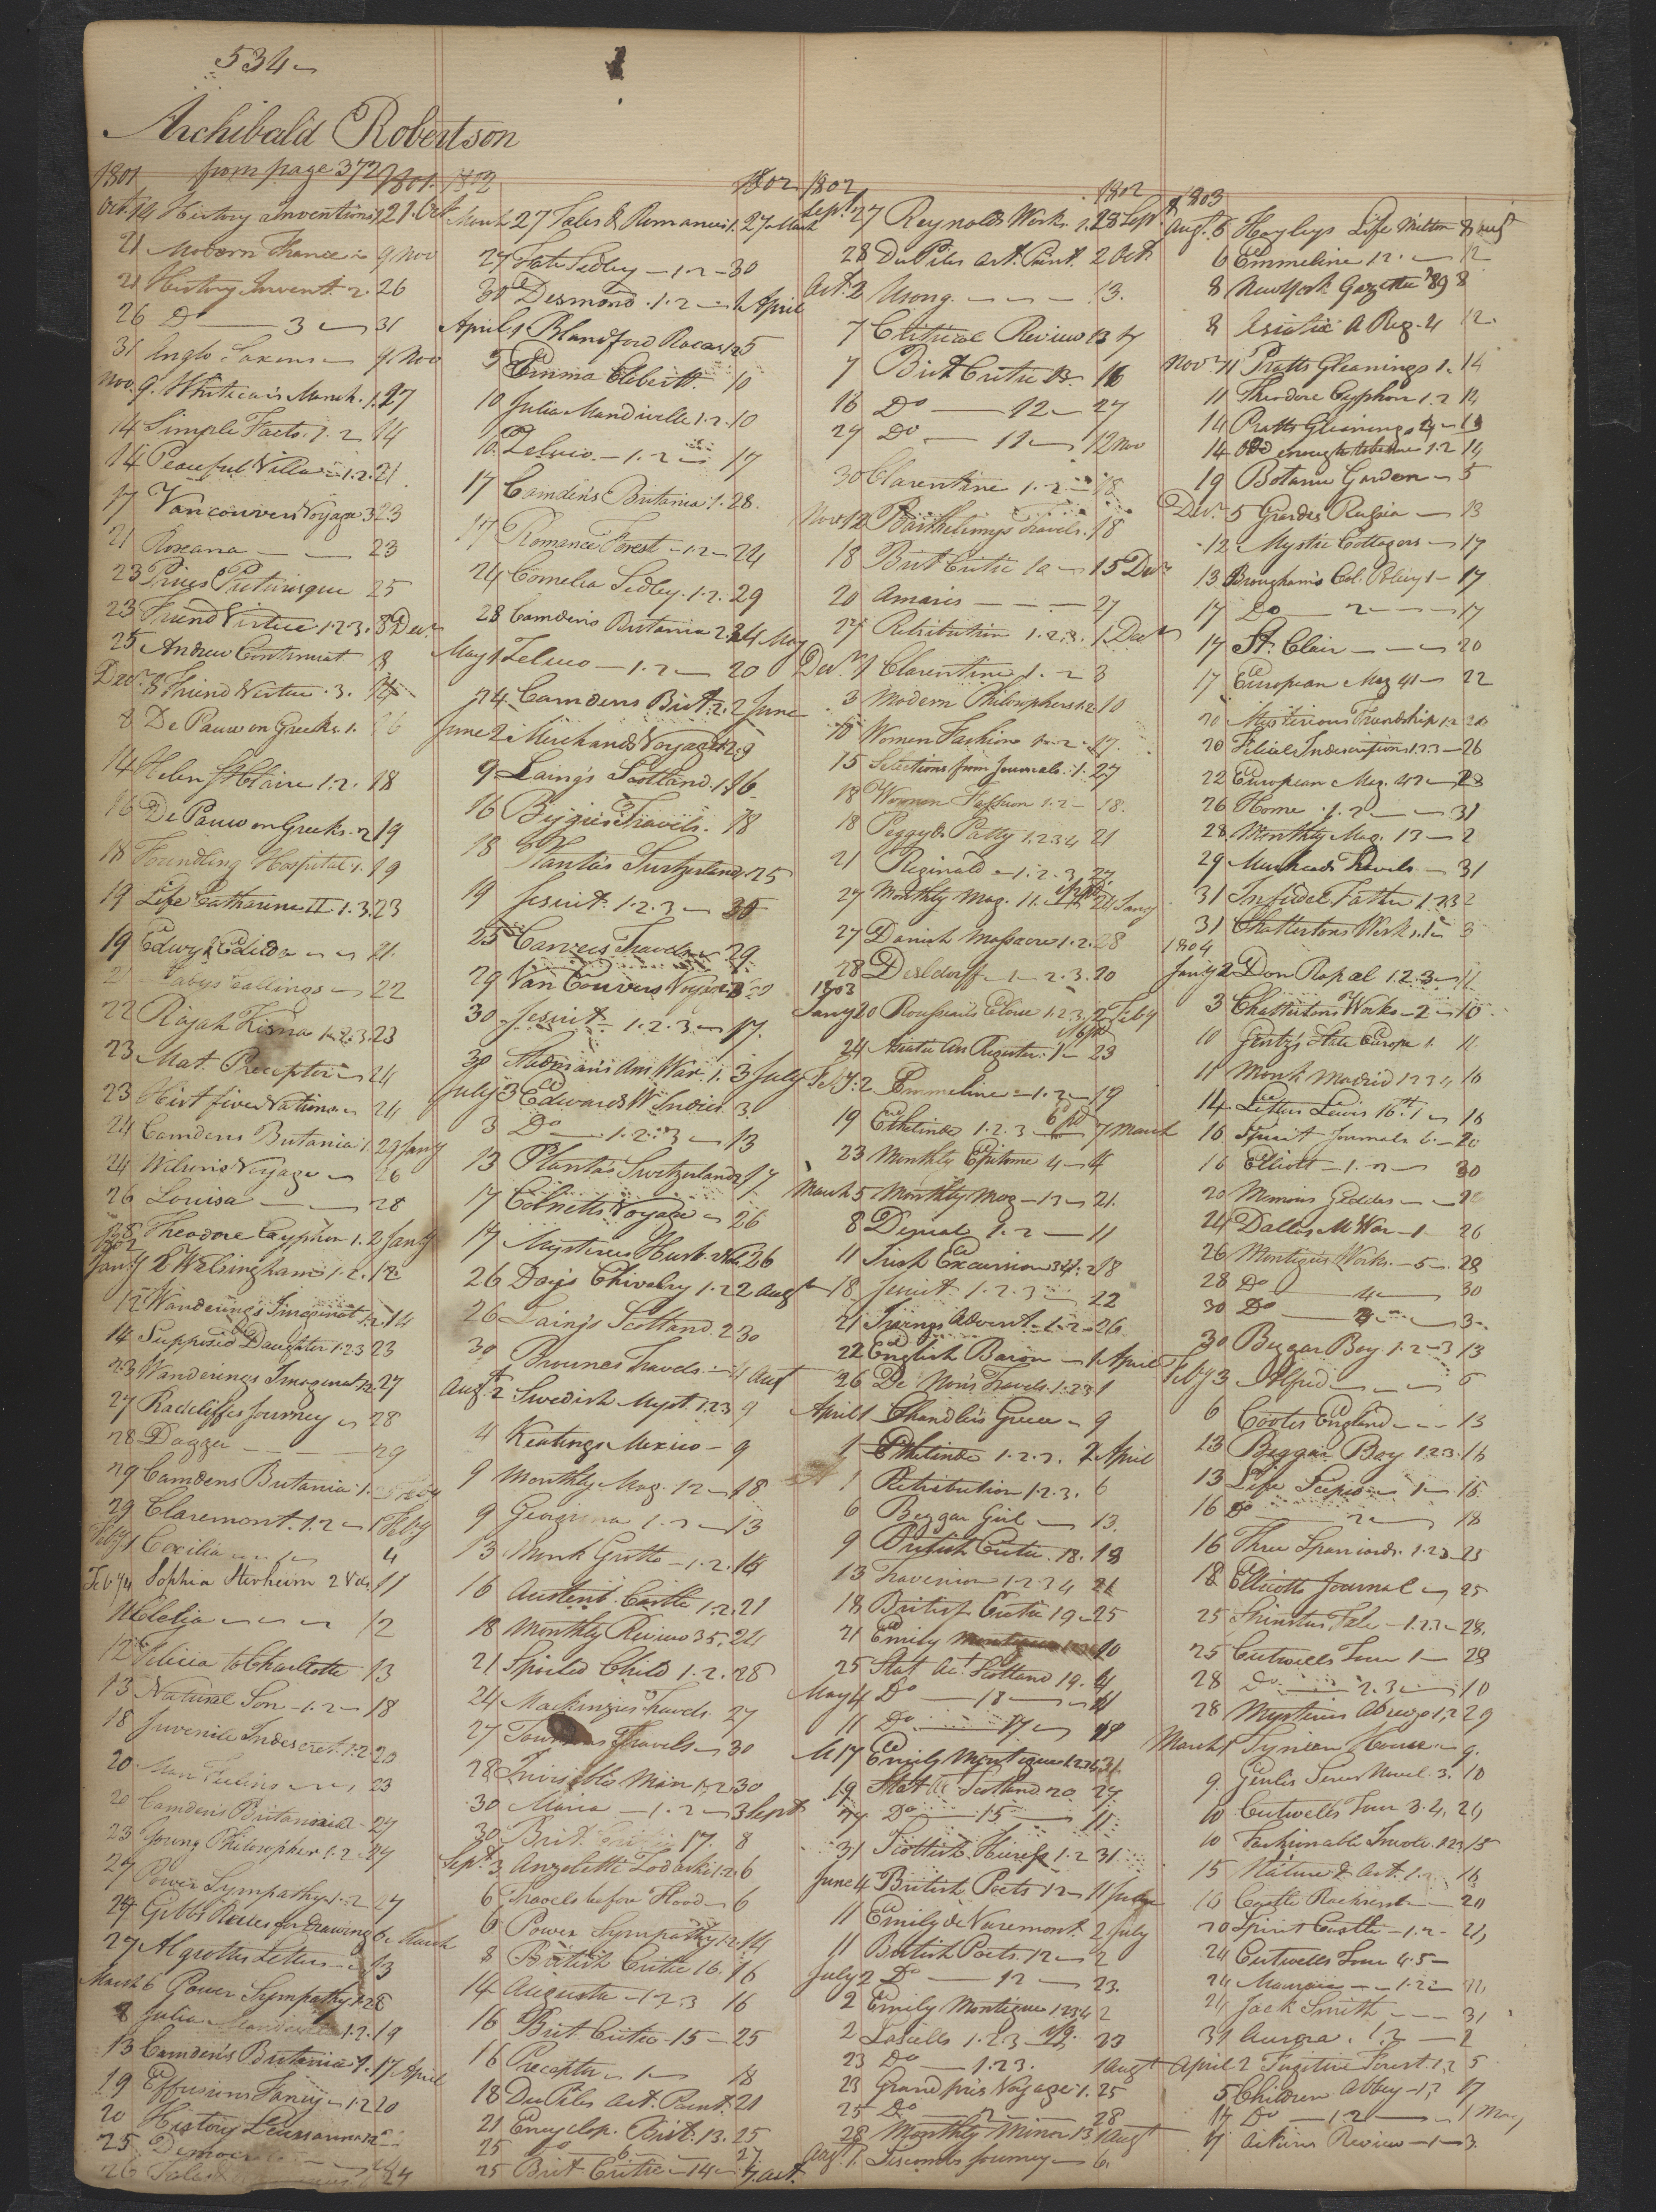 534
Archibald Robertson
1801 from page 372 1801
Octr 14 History Inventions 1 21 Oct
21 Modern France 9 Nov
21 History Invent. 2. 26
26 Do 3 31
31 Anglo Saxons 9 Nov
Nov. 9. Whiticar's Monch. 1. 27
14 Simple Facts. 1. 2 14
14 Peaceful Villa 1. 2. 21
17 Vancouvers Voyage 3 23
21 Roxana 23
23 Prices Picturisque 25
23 Friend Virtue 1 2 3. 8 Decr
25 Andrew Continuat 8
Decr 8 Friend Virtue. 3. 14
8 De Pauw on Greeks 1. 16
14 Helen St Claire 1. 2. 18
16 De Pauw on Greeks. 2 19
18 Foundling Hospital 1. 19
19 Life Catharine II 1. 3. 23
19 Edwy & Edilda 21.
22
22 Rajah Kisna 1. 2. 3. 23
23 Mat. Preceptor 24
23 Hist five Nations 24
24 Camdens Britania 1. 23 Jany
24 Wilson's Voyage 26
26 Louisa 28
28 Theodore Cyphon 1. 2 Jany
1802
Jany 2 Walsingham 1. 2. 12
12 Wanderings Imaginat 1. 2. 14
14 Supposed Daughter 1 2 3 23
23 Wanderings Imaginat 1 2. 27
27 Radcliffes Journey 28
28 Dagger 29
29 Camdens Britania 1. Feby
29 Claremont. 1. 2 1 Feby
Feby 1 Cecilia 1 4
Feby 4 Sophia Sternheim 2 Vols 11
11 Clelia 12
12 Felicia to Charlotte 13
13 Natural Son 1. 2 18
18 Juvenile Indescret. 1. 2 20
20 Man Feeling 23
20 Camdens Britania 2 27
23 Young Philosopher 1. 2 27
27 Power Sympathy 1. 2 27
27 Gibbs Rules for Drawing 6 March
27 Algrottis Letters 13
March 6 Power Sympathy 1 2 8
8 Julia Mandeville 1. 2. 19
13 Camden's Britania 1. 17 April
19 Effusions Fancy 1. 2 20
20 History
25
26 24
1802 1802
March 27 Tales & Romances 1. 27 March
27 Fate Sedley 1. 2 30
30 Desmond. 1. 2 1 April
April 1 Blandford Races 1 2 5
5 Emma Corbett. 10
10 Julia Mandiville 1. 2. 10
10. Zeluco. 1. 2 17
17 Camden's Britania 1. 28.
17 Romance Forest 1. 2 24
24 Cornelia Sedley. 1. 2. 29
28 Camdens Britania 2. 24 May
May 1 Zeluco 1. 2 20
24 Camdens Brit. 2. 2 June
June 2 Mirchands Voyages 1 2. 9
9 Laing's Scotland. 1. 16
16 Bijgies Travels. 18
18 Plantas Switzerland. 25
19 Jesuit. 1. 2. 3 30
25 Carvers Travels 29
29 Van Couvers Voyage
30 Jesuit 1. 2. 3 17.
30 Stedman's Am War. 1. 3 July
July 3 Edwards W Indies 3
3 Do 1. 2. 3 13
13 Plantas Switzerland 2 17
17 Colnetts Voyage 26
17 Mysterious Husb. 26
26 Day's Chivalry 1. 2 2 Augt
26 Laings Scotland. 2 30
30 Brownes Travels. 4 Augt
Augt 2 Swedish Myst. 1. 2 3 9
4 Keatings Mexico 9
9 Monthly Mag. 12 18
9 Georgina 1. 2 13
13 Monk Grotto 1. 2. 16
16 Austenb. Castle 1. 2. 21
18 Monthly Review 35. 24
21 Spoiled Child 1. 2. 28
24 Mackenzies Travels. 27
27 Travels 30
28 Invisible Man 1. 2. 30
30 Maria 1. 2 3 Sept
30 Brit. Critic 17. 8
Sept 3 Anzoletti Zodaski 1. 2. 6
6 Travels before Flood 6
6 Power Sympathy 1. 2. 14
8 British Critic 16. 16
14 Augusta 1. 2. 3 16
16 Brit. Critic 15 25
16 Preceptor 1 18
18 Du Piles Art. Paint. 21
21 Encyclop. Brit. 13. 25
25 Do 6 27
25 Brit Critic 14 7. Oct.
1802 1802
Sept. 27 Reynolds Works. 1. 28 Sept.
28 Du Piles Art. Paint. 2 Oct
Oct. 2 Usong. 13.
7 Critical Review 13 7
7 Brit Critic 13. 16
16 Do 12 27
27 Do 11 12 Nov
30 Clarentine 1. 2 18
Nov 12 Barthelimys Travels. 18
18 Brit Critic 10 15 Decr
20 Amaris 27
27 Retribution 1. 2. 3. 1 Decr
Decr. 1 Clarentine 1. 2 3
3 Modern Philosophers 1. 2 10
10 Women Fashion 1. 2. 17.
15 Selections from Journals. 1. 27
18 Women Fashion 1. 2 18.
18 Peggy & Patty 1. 2 3 4 21
21 Reginald 1. 2. 3 27
27 Monthly Mag. 11. 24 Jany
27 Danish Massacre 1. 2. 28
28 Desldorff 1 2. 3. 20
1803
Jany 20 Rousseaus Eloise 1. 2. 3. 2 Feby
24 Asiatic An Register. 1 23
Feby. 2 Emmeline 1. 2 19
19 Ethelinde 1. 2. 3 7 March
23 Monthly Epitome 4 4
March 5 Monthly Mag 13 21.
8 Denial 1. 2 11
11 Irish Excursion 3 4. 18
18 Jesuit 1. 2. 3 22
21 Irvings Advent. 1. 2 26
22 English Baron 1 April
26 De Non's Travels. 1. 2 3 1
April 1 Chandlers Greece 9
1 Ethelinde 1. 2. 3. 2 April
1 Retribution 1. 2. 3. 6
6 Beggar Girl 13.
9 British Critic. 18. 18
13 Travenion 1. 2 3 4 21
18 British Critic 19 25
21 Emily Montigue 10
25 Stat Act. Scotland 19. 4
May 4 Do 18 11
11 Do 17. 19
17 Emily Montigue 1. 2 3 4 31.
19 Stat Scotland 20 27.
27 Do 15 11
31 Scottish Heiress 1. 2 31.
June 4 British Poets 12 11 June
11 Emily de Varemont. 2 July
11 British Poets 12 2
July 2 Do 12 23.
2 Emily Montigue 1 2 3 4 2
2 Lascells 1. 2. 3 23
23 Do 1. 2 3. 1 Augt
23 Grandpris Voyage 1. 25
25 Do 28
28 Monthly Mirror 13 1 Augt
Augt. 1. Liscombs Journey 6.
1803
Augt. 6 Hayleys Life Milton 8 Augt
6 Emmeline 1 2. 12
8 New York Gazette 89 8
8 Asiatic A Reg. 4 12.
Novr 11 Pratts Gleanings 1. 14
11 Theodore Cyphon 1. 2 14
14 Pratts Gleanings 2 19
14 Old enough to be 1. 2 19
19 Botanic Garden 5
Decr 5 Russia 13
12 Mystic Cottagers 17
13 Brougham's Col. Policy 1 17
17 Do 2 17
17 St. Clair 20
17 European Mag 41 22
20 Mysterious Friendship 1. 2 26
20 Filial Indiscretions 1. 2 3 26
22 European Mag. 42 28
26 Home. 1. 2 31
28. Monthly Mag. 13 2
29 Muirheads Travels 31
31 Infidel Father 1. 2 3 2
31 Chattertons Works. 1 3
1804
Jany 2 Don Raphael 1. 2. 3 11
3 Chattertons Works 2 10
10 Gentz's State Europe 1. 11
11 Monk Madrid 1 2 3 4 16
14 Letters Lewis 16th 1 16
16 Journals 6. 20
16 Elliott 1. 2 30
20 Memoirs Geddes 26
24 Dallas M War 1 26
26 Montigues Works. 5. 28
28 Do 4 30
30 Do 3 3
30 Beggar Boy 1. 2 3 13
Feby 3 Alfred 6
6 Cootes England 13
13 Beggar Boy 1 2 3. 16
13 Life Scipio 1 16
16 Do 2 18
16 Three Spaniards. 1. 2 3 25
18 Ellicotts Journal 25
25 Spinsters Tale 1. 2. 3 28.
25 Crutwells Tour 1 28
28 Do 2. 3 10
28 Mysterious 1. 2 29
March 1 House 9.
9. Genlis Novel. 3. 10
10 Crutwells Tour 3. 4. 24
10 Fashionable Involv. 1 2 3 15
15 Nature & Art. 1. 2. 16
16 Castle Rackrent 20
20 Spirit Castle 1. 2. 24
24 Crutwells Tour 4. 5
24 1. 2
24 Jack Smith 31
31 Aurora. 1. 2 2
April 2 Fugitive Forest. 1. 2 5
5 Children Abbey 1. 2 17
17 Do 1. 2 1 May
17 Aikins Review 1 3.